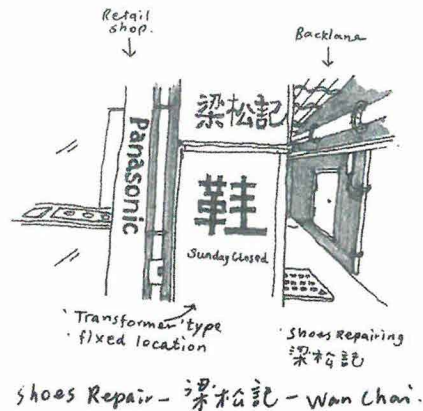 Retail
shop.
Backlane
梁松記
Panasonic
鞋
Sunday Closed
'Transformer' type
fixed location
Shoes Repairing
梁松記
Shoes Repair - 梁松記 - Wan Chai.